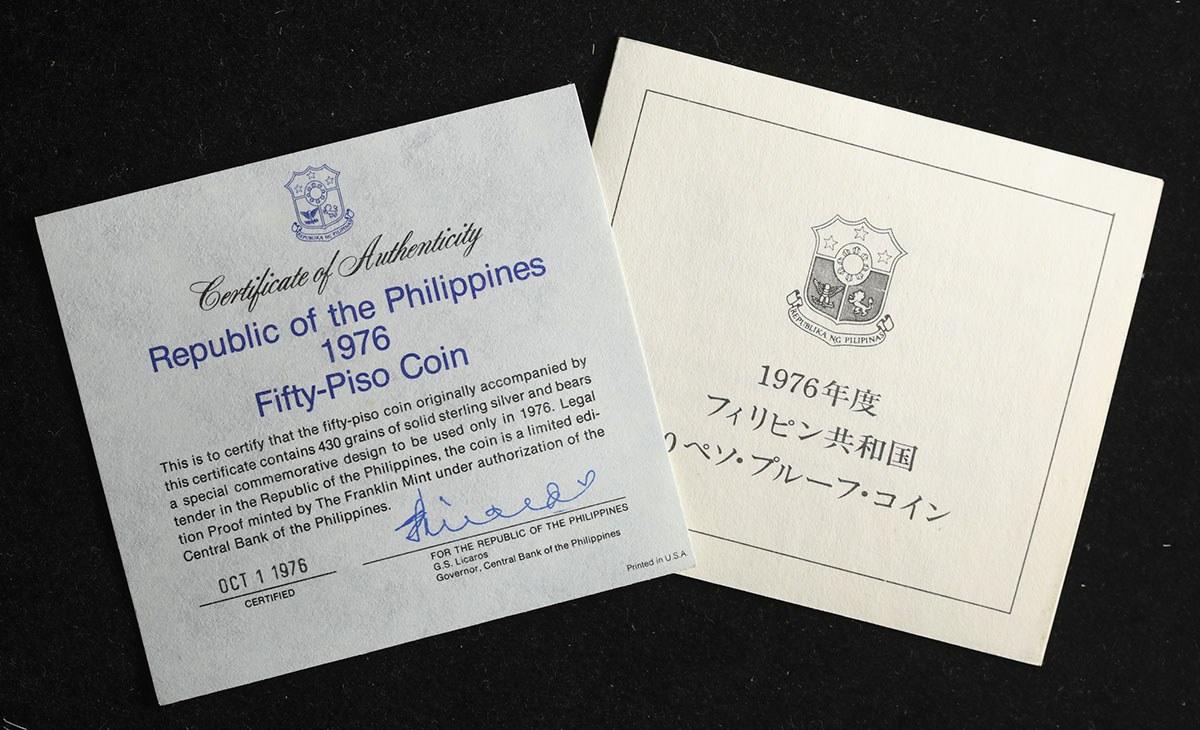 REPUBLIKA NG PILIPINAS
Certificate of Authenticity
Republic of the Philippines
1976
Fifty-Piso Coin
This is to certify that the fifty-piso coin originally accompanied by
this certificate contains 430 grains of solid sterling silver and bears
a special commemorative design to be used only in 1976. Legal
tender in the Republic of the Philippines, the coin is a limited edi-
tion Proof minted by The Franklin Mint under authorization of the
Central Bank of the Philippines.
OCT 1 1976
CERTIFIED
FOR THE REPUBLIC OF THE PHILIPPINES
G.S. Licaros
Governor, Central Bank of the Philippines
Printed in U.S.A.
REPUBLIKA NG PILIPINAS
1976年度
フィリピン共和国
ペソ・プルーフ・コイン